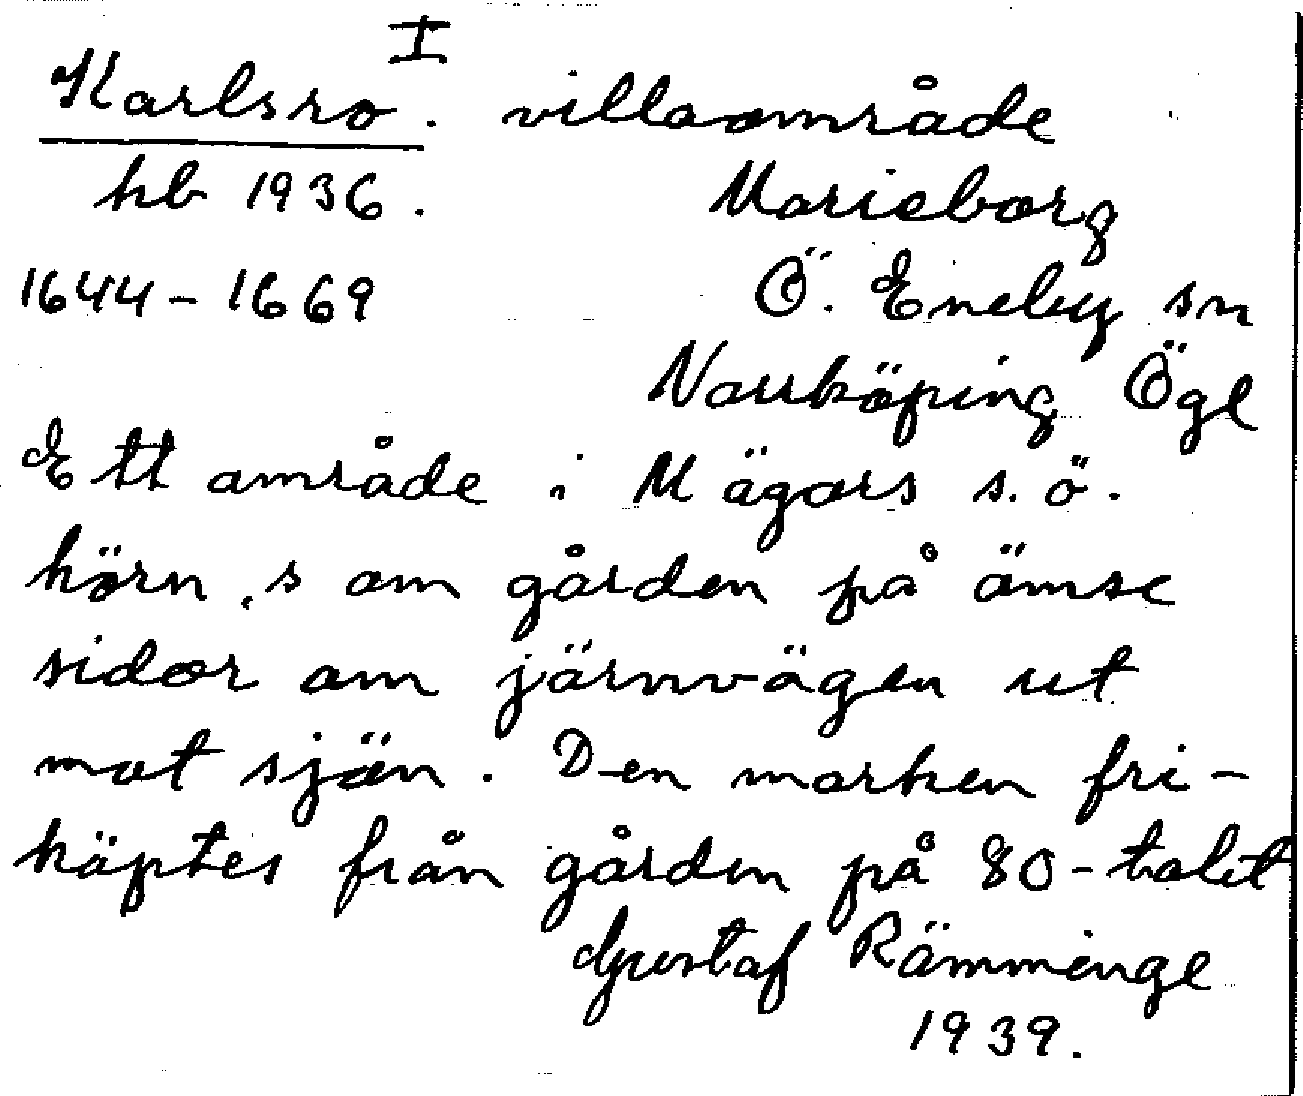 I
Karlsro. villaområde
hb 1936. Marieborg
1644-1669 Ö. Eneby sn
Norrköping Ögl
Ett område i M ägors s.ö.
hörn, s om gården på ömse
sidor om järnvägen ut
mot sjön. Den marken fri-
köptes från gården på 80-talet
Gustaf Rämminge
1939.